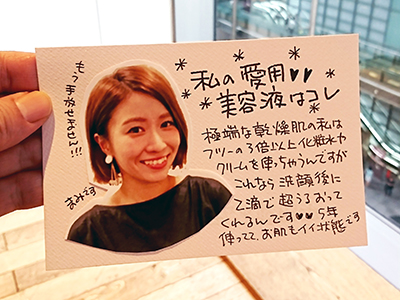 もう手放せません!!!
まみです
私の愛用♥♥
美容液はコレ
極端な乾燥肌の私は
フツーの3倍以上化粧水や
クリームを使っちゃうんですが
これなら洗顔後に
2滴で超うるおって
くれるんです♥♥5年
使ってて、お肌もイイ状態です